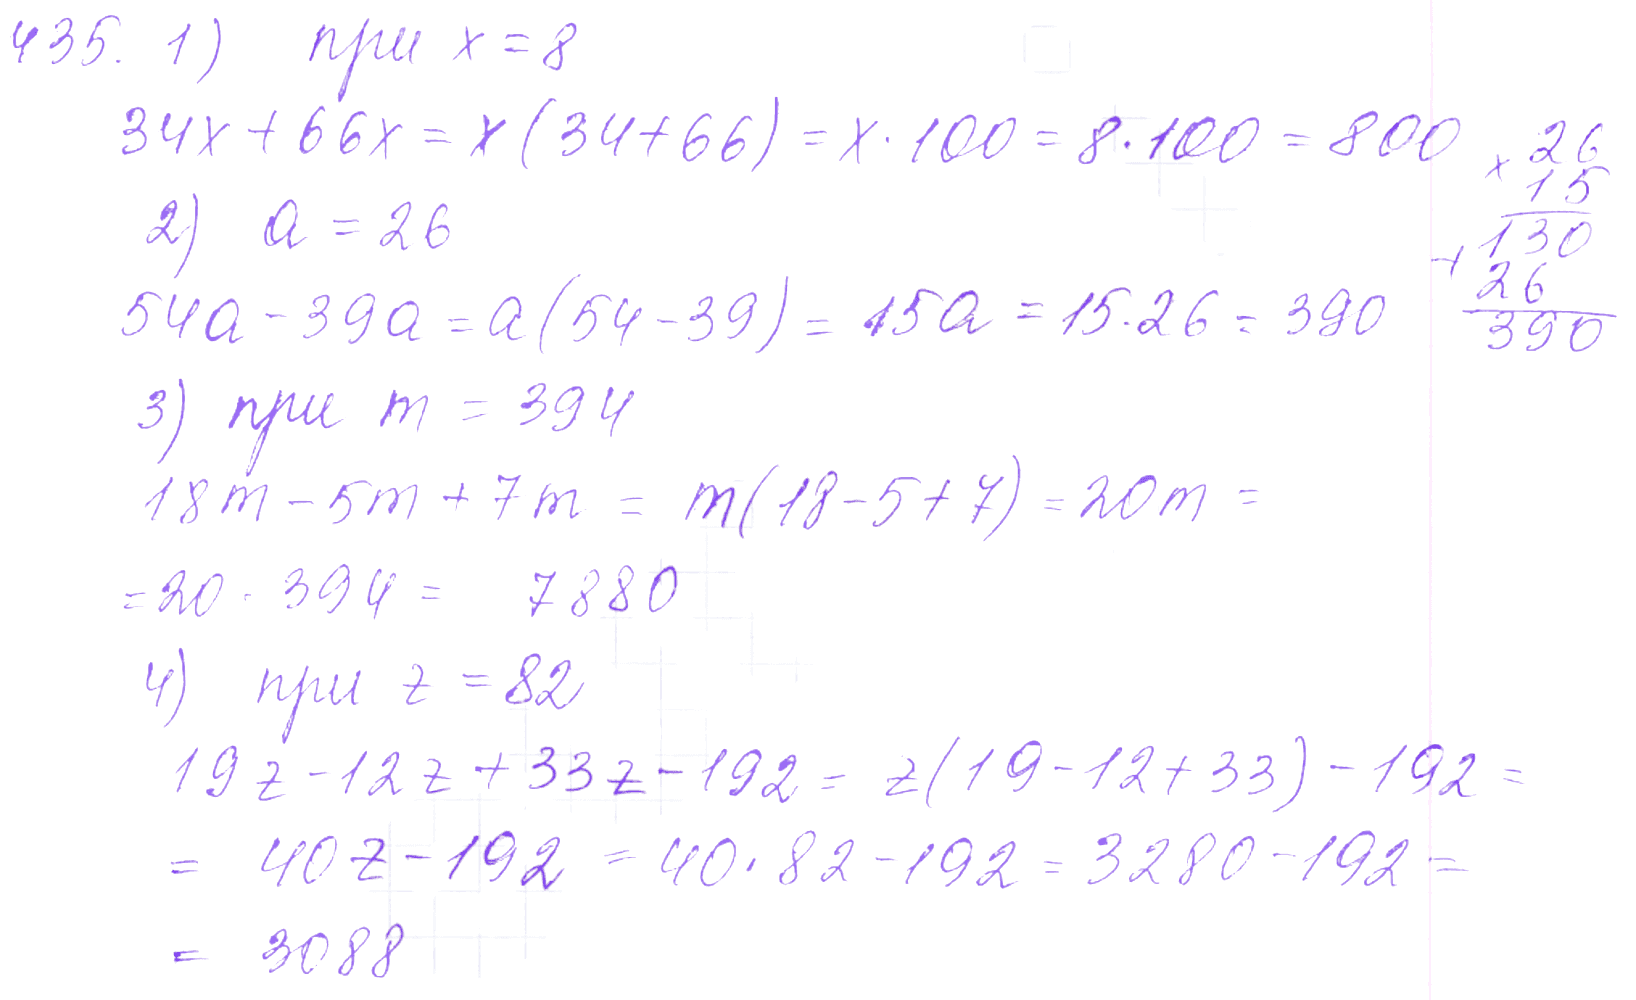 435. 1) при x = 8
34x + 66x = x(34+66) = x · 100 = 8 · 100 = 800
× 26
15
130
+ 26
390
2) a = 26
54a - 39a = a(54 - 39) = 15a = 15 · 26 = 390
3) при m = 394
18m - 5m + 7m = m(18 - 5 + 7) = 20m =
= 20 · 394 = 7880
4) при z = 82
19z - 12z + 33z - 192 = z(19 - 12 + 33) - 192 =
= 40z - 192 = 40 · 82 - 192 = 3280 - 192 =
= 3088